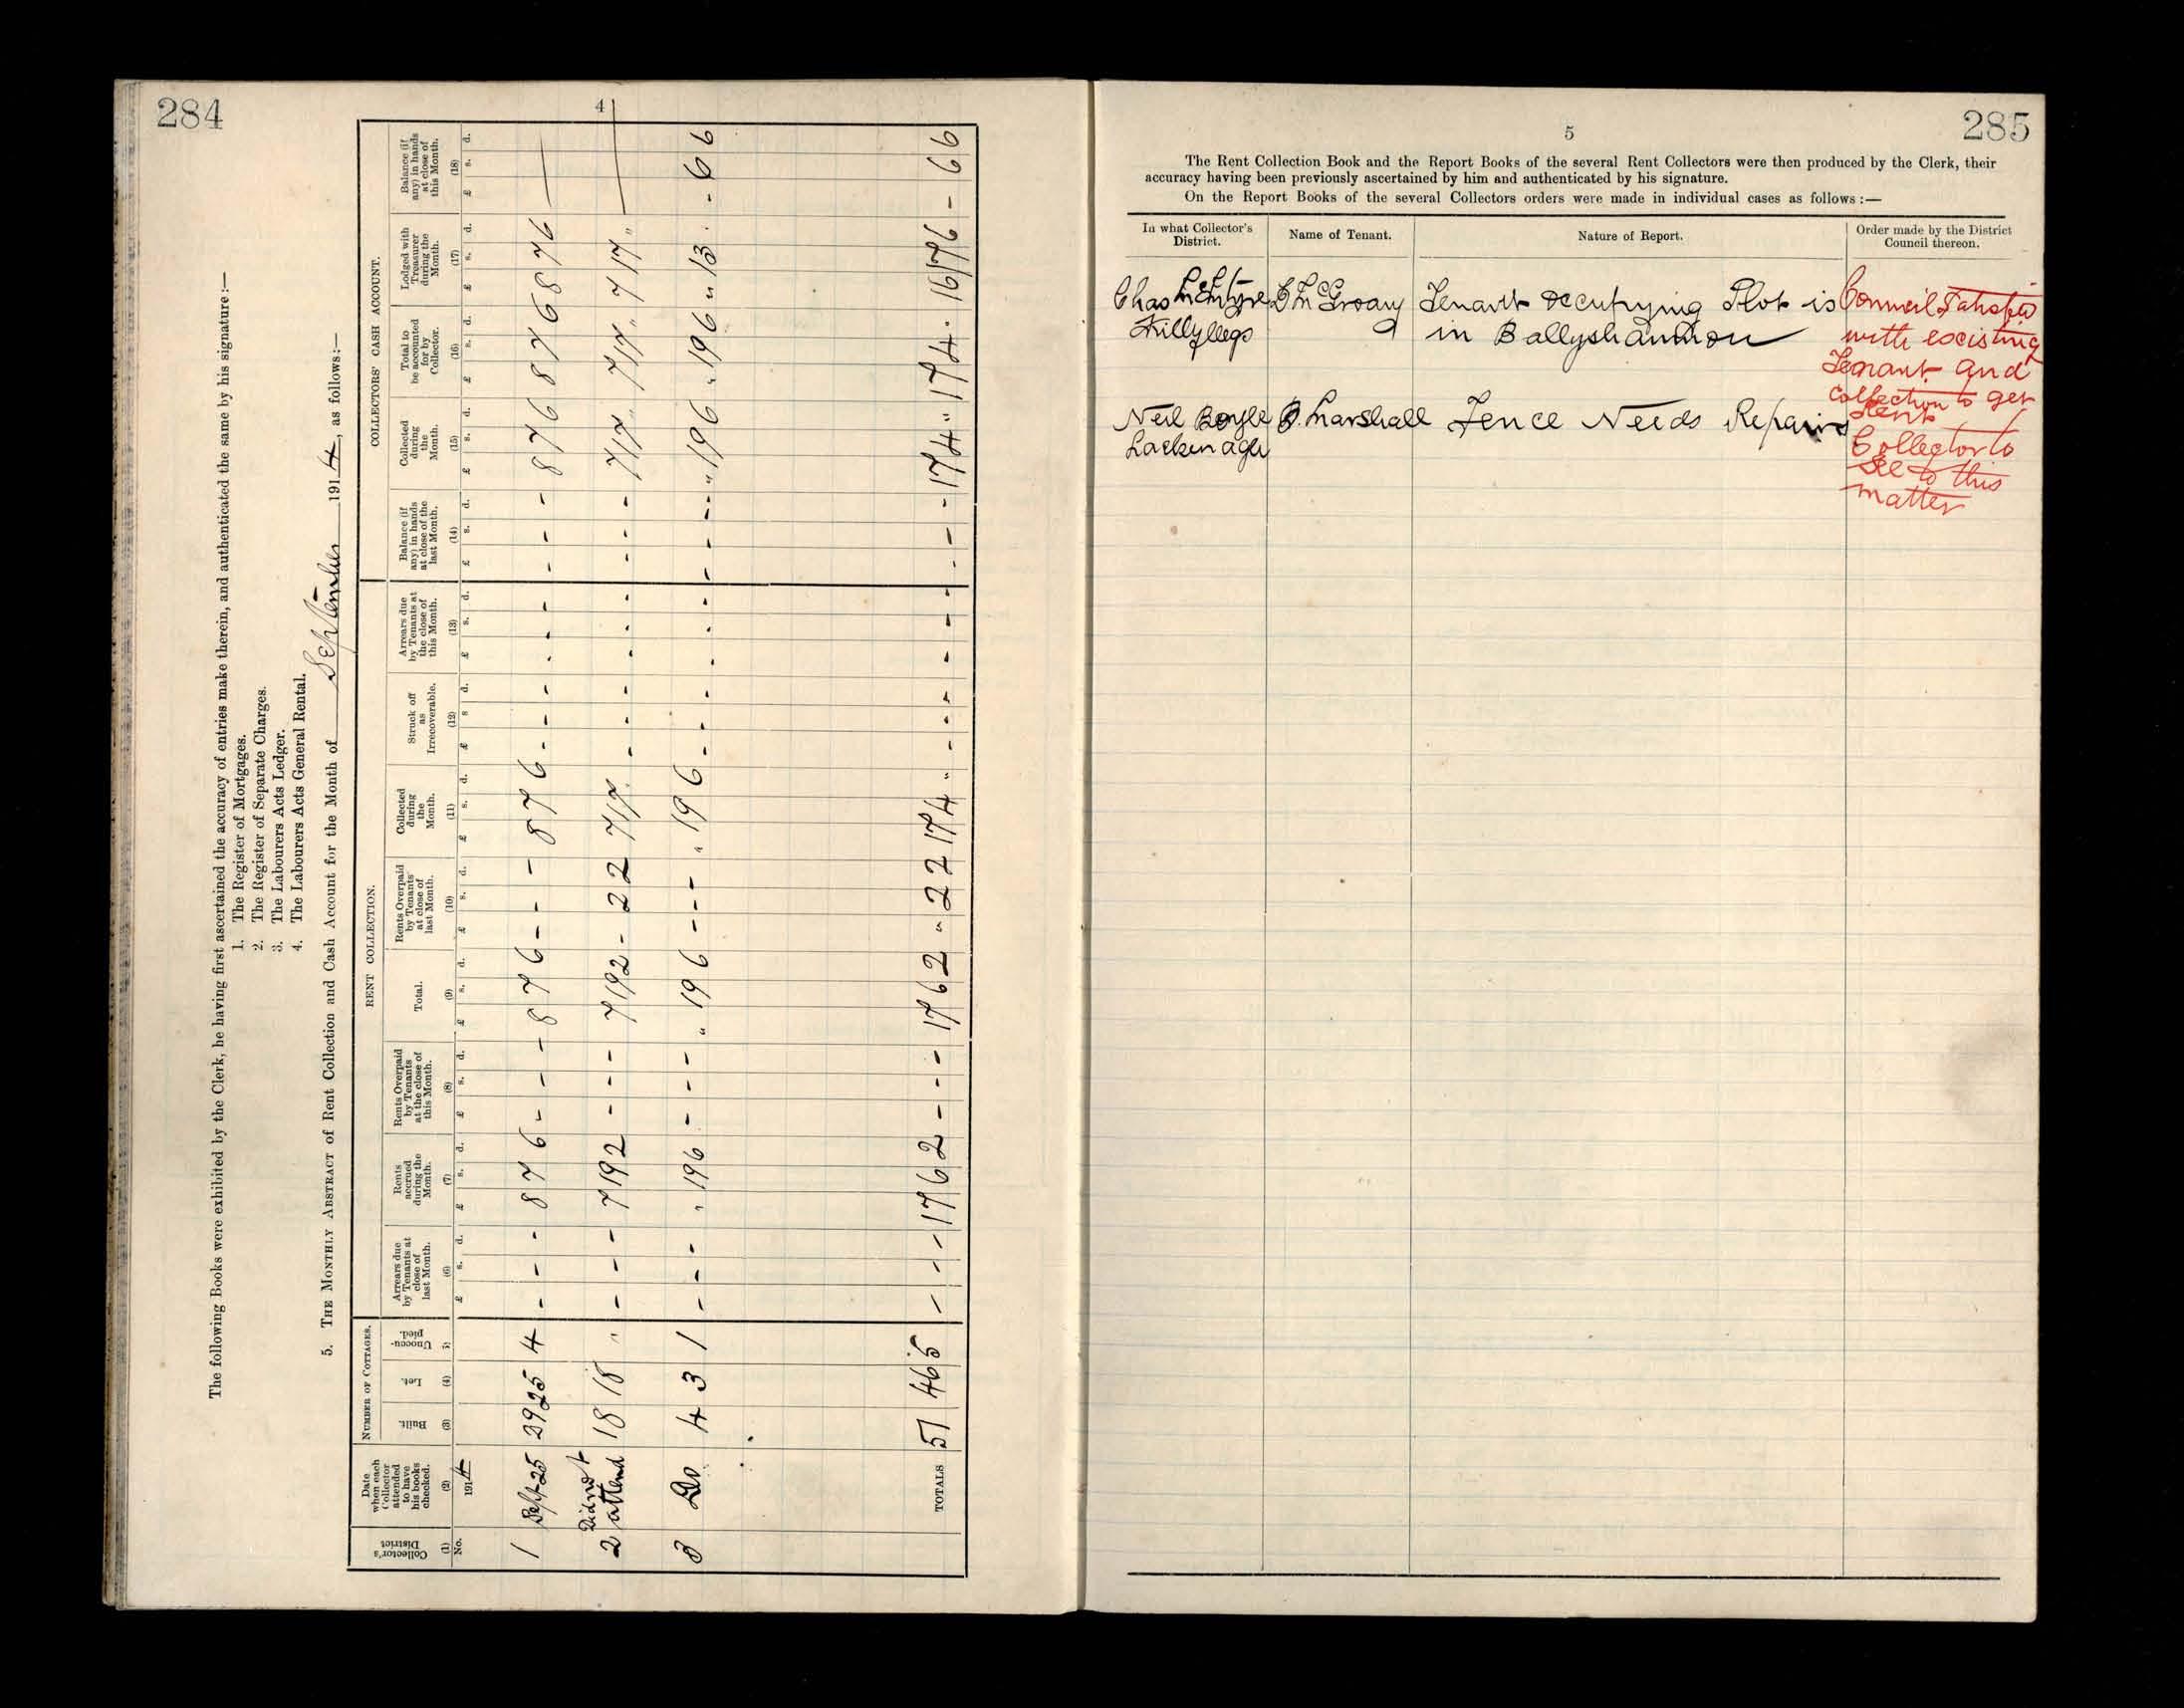 284
4
The following Books were exhibited by the Clerk, he having first ascertained the accuracy of entries make therein, and authenticated the same by his signature :—
1. The Register of Mortgages.
2. The Register of Separate Charges.
3. The Labourers Acts Ledger.
4. The Labourers Acts General Rental.
5. THE MONTHLY ABSTRACT of Rent Collection and Cash Account for the Month of September 1914, as follows:—
NUMBER OF COTTAGES. RENT COLLECTION. COLLECTORS' CASH ACCOUNT.
Collector's District
Date when each Collector attended to have his books checked.
Built.
Let.
Unoccupied.
Arrears due by Tenants at close of last Month.
Rents accrued during the Month.
Rents Overpaid by Tenants at the close of this Month.
Total.
Rents Overpaid by Tenants at close of last Month.
Collected during the Month.
Struck off as Irrecoverable.
Arrears due by Tenants at the close of this Month.
Balance (if any) in hands at close of the last Month.
Collected during the Month.
Total to be accounted for by Collector.
Lodged with Treasurer during the Month.
Balance (if any) in hands at close of this Month.
(1) (2) (3) (4) (5) (6) (7) (8) (9) (10) (11) (12) (13) (14) (15) (16) (17) (18)
No. 1914 £ s. d. £ s. d. £ s. d. £ s. d. £ s. d. £ s. d. £ s d. £ s. d. £ s. d. £ s. d. £ s. d. £ s. d. £ s. d.
1 Sept 25 29 25 4 - - - 8 7 6 - - - 8 7 6 - - - 8 7 6 - - - - - - - - - 8 7 6 8 7 6 8 7 6 —
2 Did not attend 18 18 " - - - 7 19 2 - - - 7 19 2 - 2 2 7 17 . - - - - - - - - - 7 17 " 7 17 " 7 17 " —
3 Do 4 3 1 - - - " 19 6 - - - " 19 6 - - - " 19 6 - - - - - - - - - " 19 6 " 19 6 " 13 . - 6 6
TOTALS 51 46 5 - - - 17 6 2 - - - 17 6 2 " 2 2 17 4 " - - - - - - - - - 17 4 " 17 4 . 16 17 6 - 6 6
285
5
The Rent Collection Book and the Report Books of the several Rent Collectors were then produced by the Clerk, their
accuracy having been previously ascertained by him and authenticated by his signature.
On the Report Books of the several Collectors orders were made in individual cases as follows :—
In what Collector's District. Name of Tenant. Nature of Report. Order made by the District Council thereon.
Chas McEntyre
McGroary
Tenant occupying Plot is
in Ballyshannon
Council Satisfied
with excisting
Tenant and
Collection to get
Rent
Neil Boyle
Marshall
Fence Needs Repairs
Collector to
see to this
matter